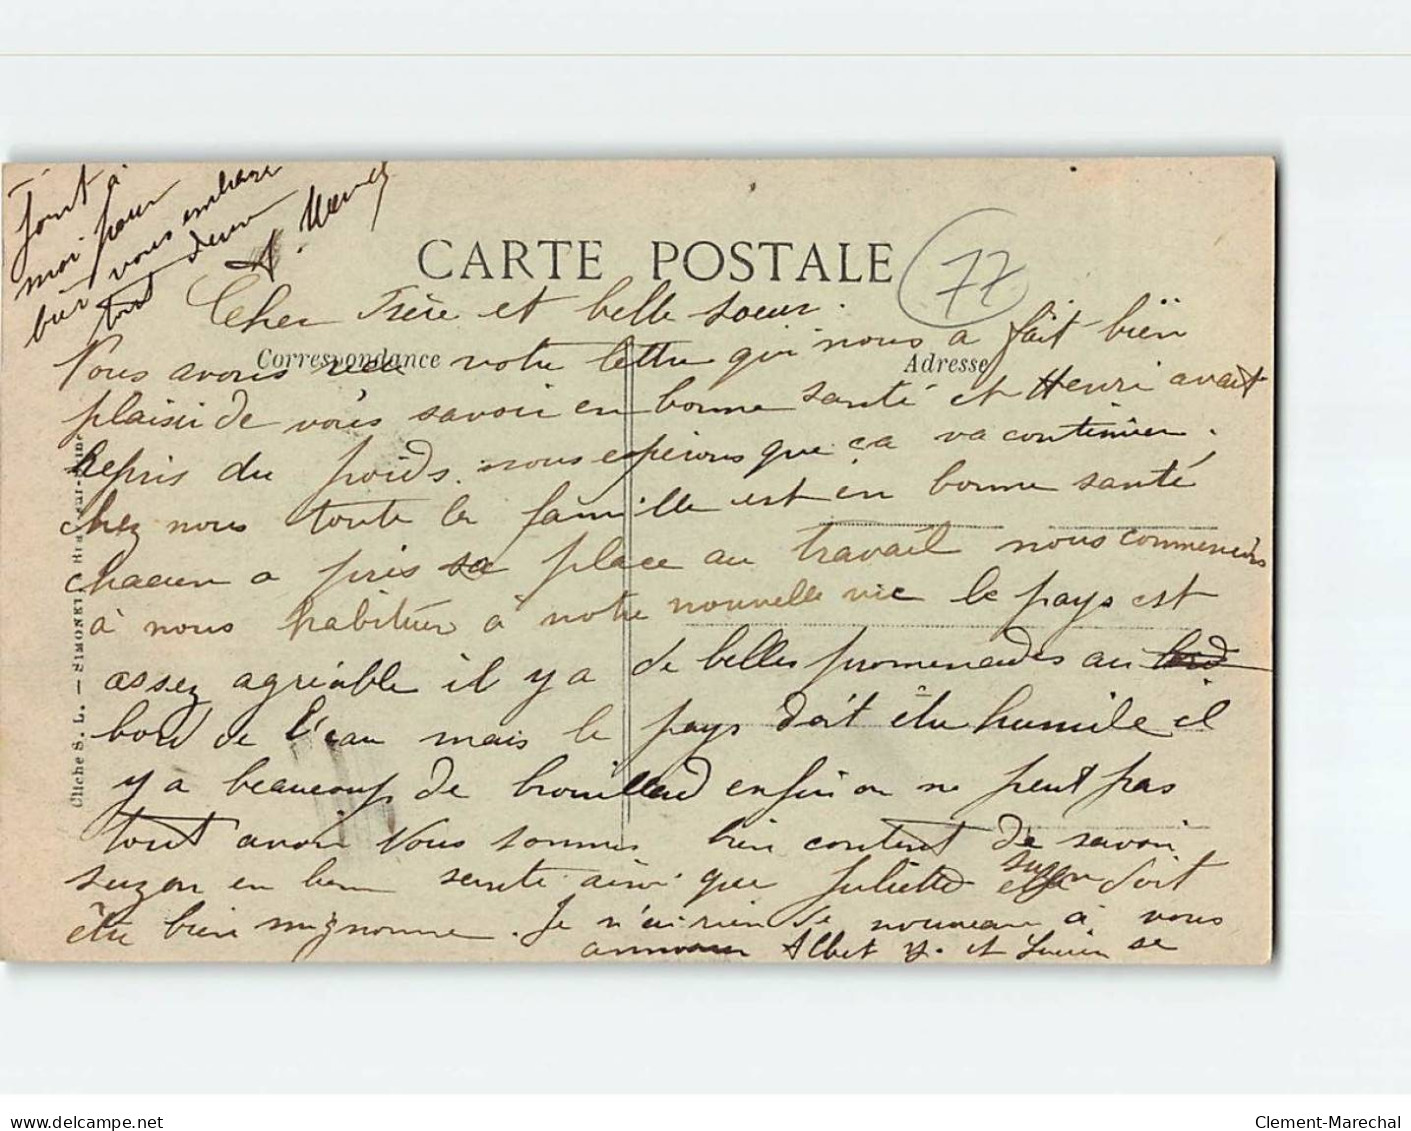 CARTE POSTALE
77
Correspondance
Adresse
Cher Frère et belle soeur.
Nous avons reçu votre lettre qui nous a fait bien
plaisir de vous savoir en bonne santé et Henri avait
Repris du poids. nous espérons que ça va continuer.
chez nous toute la famille est en bonne santé
chacun a pris sa place au travail nous commencons
à nous habituer à notre nouvelle vie le pays est
assez agréable il y a de belles promenades au
bord de l'eau mais le pays doit être humide il
y a beaucoup de brouillard enfin on ne peut pas
tout avoir Nous sommes bien content de savoir
suzon en bonne sente ainsi que Juliette suzon doit
être bien mignonne. Je n'ai rien de nouveau à vous
annoncer Albert y. et Lucien se
Joint à
moi pour
bien vous embrasser
tout deux
A.
Cliché S. L. — SIMONET, Bray-sur-Seine
delcampe.net
Clement-Marechal